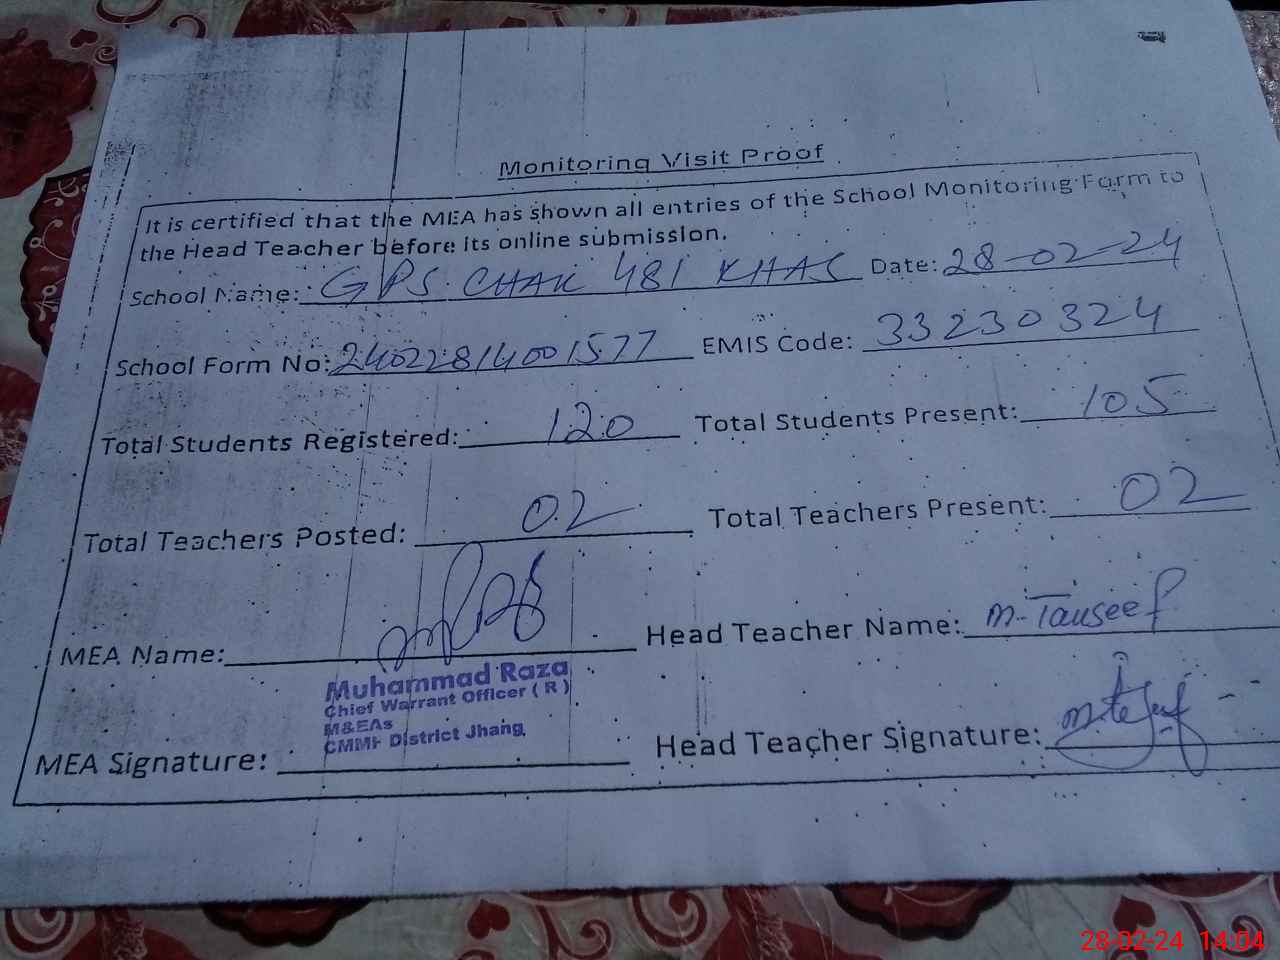 Monitoring Visit Proof
It is certified that the MEA has shown all entries of the School Monitoring Form to
the Head Teacher before its online submission.
School Name: GPS. CHAK 481 KHAS Date: 28-02-24
School Form No: 24022814001577 EMIS Code: 33230324
Total Students Registered: 120 Total Students Present: 105
Total Teachers Posted: 02 Total Teachers Present: 02
MEA Name: Head Teacher Name: M. Tauseef
Muhammad Raza
Chief Warrant Officer ( R )
M&EAs
CMMF District Jhang
MEA Signature: Head Teacher Signature:
28-02-24 14:04